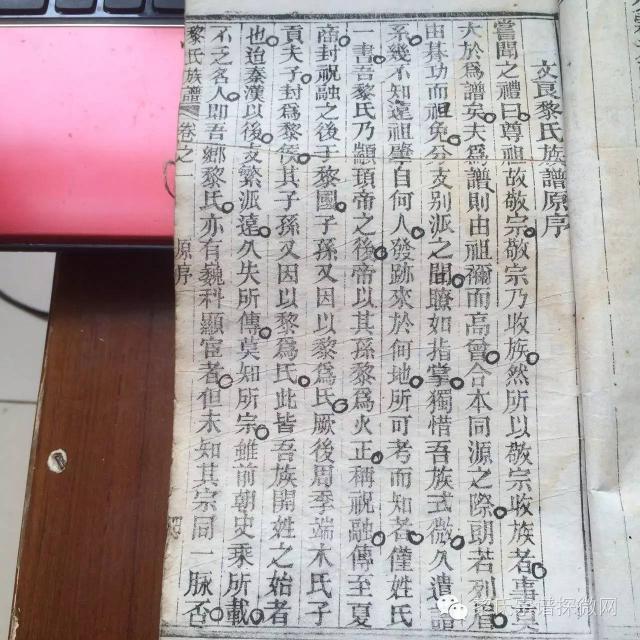 文良黎氏族譜原序
嘗聞之禮曰尊祖故敬宗敬宗乃收族然所以敬宗收族者事莫
大於爲譜矣夫爲譜則由祖禰而高曾合本同源之際朗若列眉
由其功而祖免分支別派之間瞭如指掌獨惜吾族式微久遺譜
系幾不知遠祖肇自何人發跡來於何地所可考而知者僅姓氏
一書吾黎氏乃顓頊帝之後帝以其孫黎爲火正稱祝融傳至夏
商封祝融之後于黎國子孫又因以黎爲氏厥後周季端木氏子
貢夫子封爲黎侯其子孫又因以黎爲氏此皆吾族開姓之始者
也迨秦漢以後支繁派遠久失所傳莫知所宗雖前朝史乘所載
不乏名人即吾鄉黎氏亦有巍科顯宦者但未知其宗同一脉否
黎氏族譜 卷之一 原序